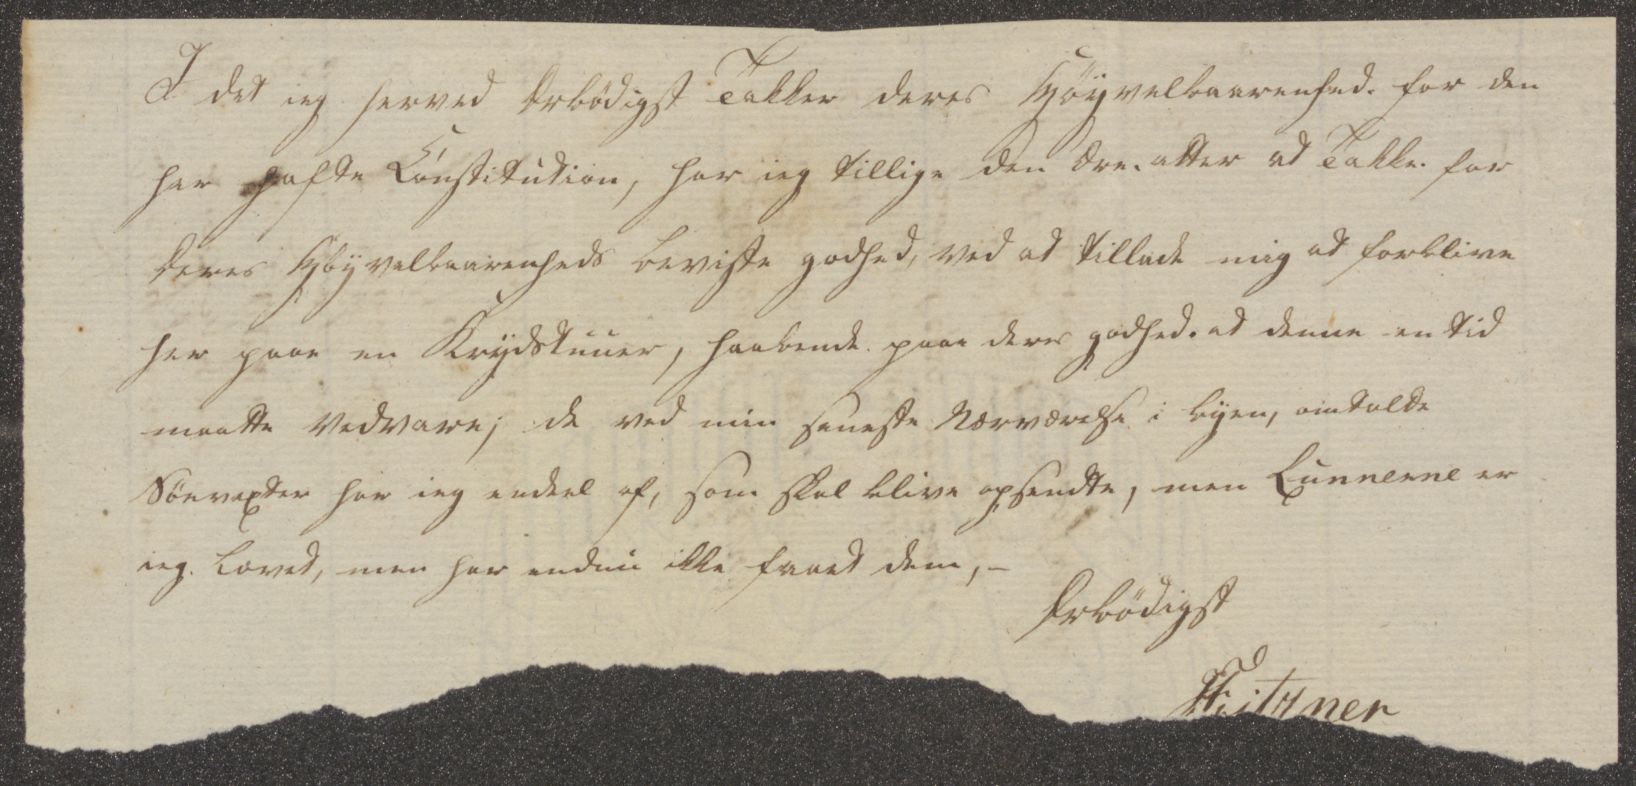 I det ieg herved Ærbødigst Takker deres Høÿvelbaarenhed. for den
her hafte Constitution, har ieg tillige den Ære. atter at Takke. for
deres Høÿvelbaarenheds beviste godhed, ved at tillade mig at forblive
her paae en Krÿdstuuer, haabende paae deres godhed. at denne en tid
maatte vedvare; de ved min seneste Nærværelse i bÿen, omtalte
Søevexter har ieg endeel af, som skal blive opsendte, men Lunnerne er
ieg. Lovet, men har endnu ikke faaet dem,-
Ærbødigst